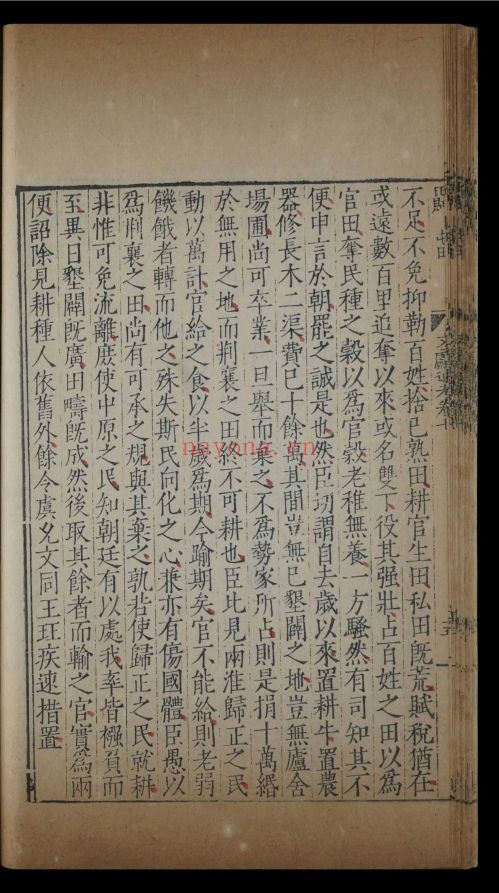 不足不免抑勒百姓捨已熟田耕官生田私田旣荒賦稅猶在
或遠數百里追奪以來或名雙下役其强壯占百姓之田以爲
官田奪民種之穀以爲官穀老稚無養一方騷然有司知其不
便申言於朝罷之誠是也然臣切謂自去歲以來置耕牛置農
器修長木二渠費已十餘萬其間豈無已墾闢之地豈無廬舍
場圃尚可卒業一旦舉而棄之不爲勢家所占則是捐十萬緡
於無用之地而荆襄之田終不可耕也臣比見兩淮歸正之民
動以萬計官給之食以半歲爲期今踰期矣官不能給則老弱
饑餓者轉而他之殊失斯民向化之心兼亦有傷國體臣愚以
爲荆襄之田尚有可承之規與其棄之孰若使歸正之民就耕
非惟可免流離庻使中原之民知朝廷有以處我率皆襁負而
至異日墾闢旣廣田疇旣成然後取其餘者而輸之官實爲兩
便詔除見耕種人依舊外餘令虞允文同王珏疾速措置
nayong.cn